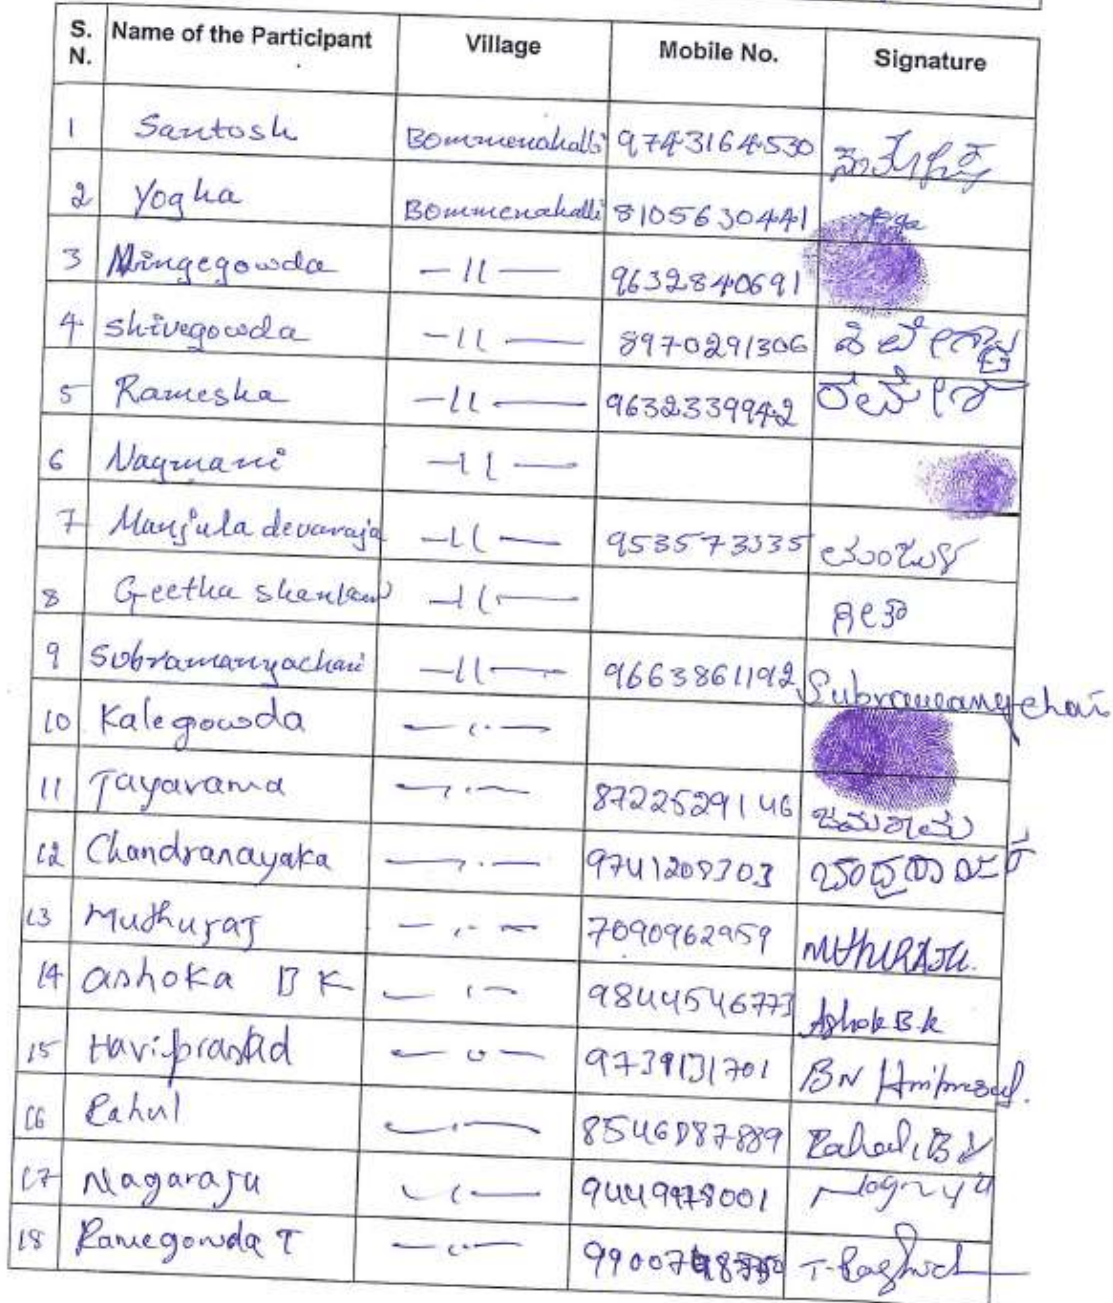 S. N. Name of the Participant Village Mobile No. Signature
1 Santosh Bommenahalli 9743164530
2 Yogha Bommenahalli 8105630441
3 Ningegowda —11— 9632840691
4 shivegowda —11— 8970291306
5 Ramesha —11— 9632339942 ರಮೇಶ
6 Nagmani —11—
7 Manjula devaraja —11— 953573335 ಮಂಜುಳ
8 Geetha —11— ಗೀತಾ
9 Subramanyachari —11— 9663861192 Subramanychari
10 Kalegowda —11—
11 Jayarama —11— 8722529146
12 Chandranayaka —11— 9741208703
13 Muthuraj —11— 7090962959 MUTHURAJU.
14 ashoka B K —11— 9844546773 Ashok B.k
15 Hariprasad —11— 9739131701 BN Hariprasad.
16 Rahul —11— 8546887889 Rahul, B
17 Nagaraju —11—
18 Ramegowda T —11—